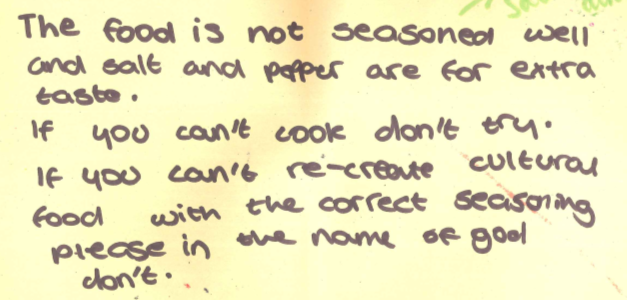 The food is not seasoned well
and salt and pepper are for extra
taste.
If you can't cook don't try.
If you can't re-create cultural
food with the correct seasoning
please in the name of god
don't.